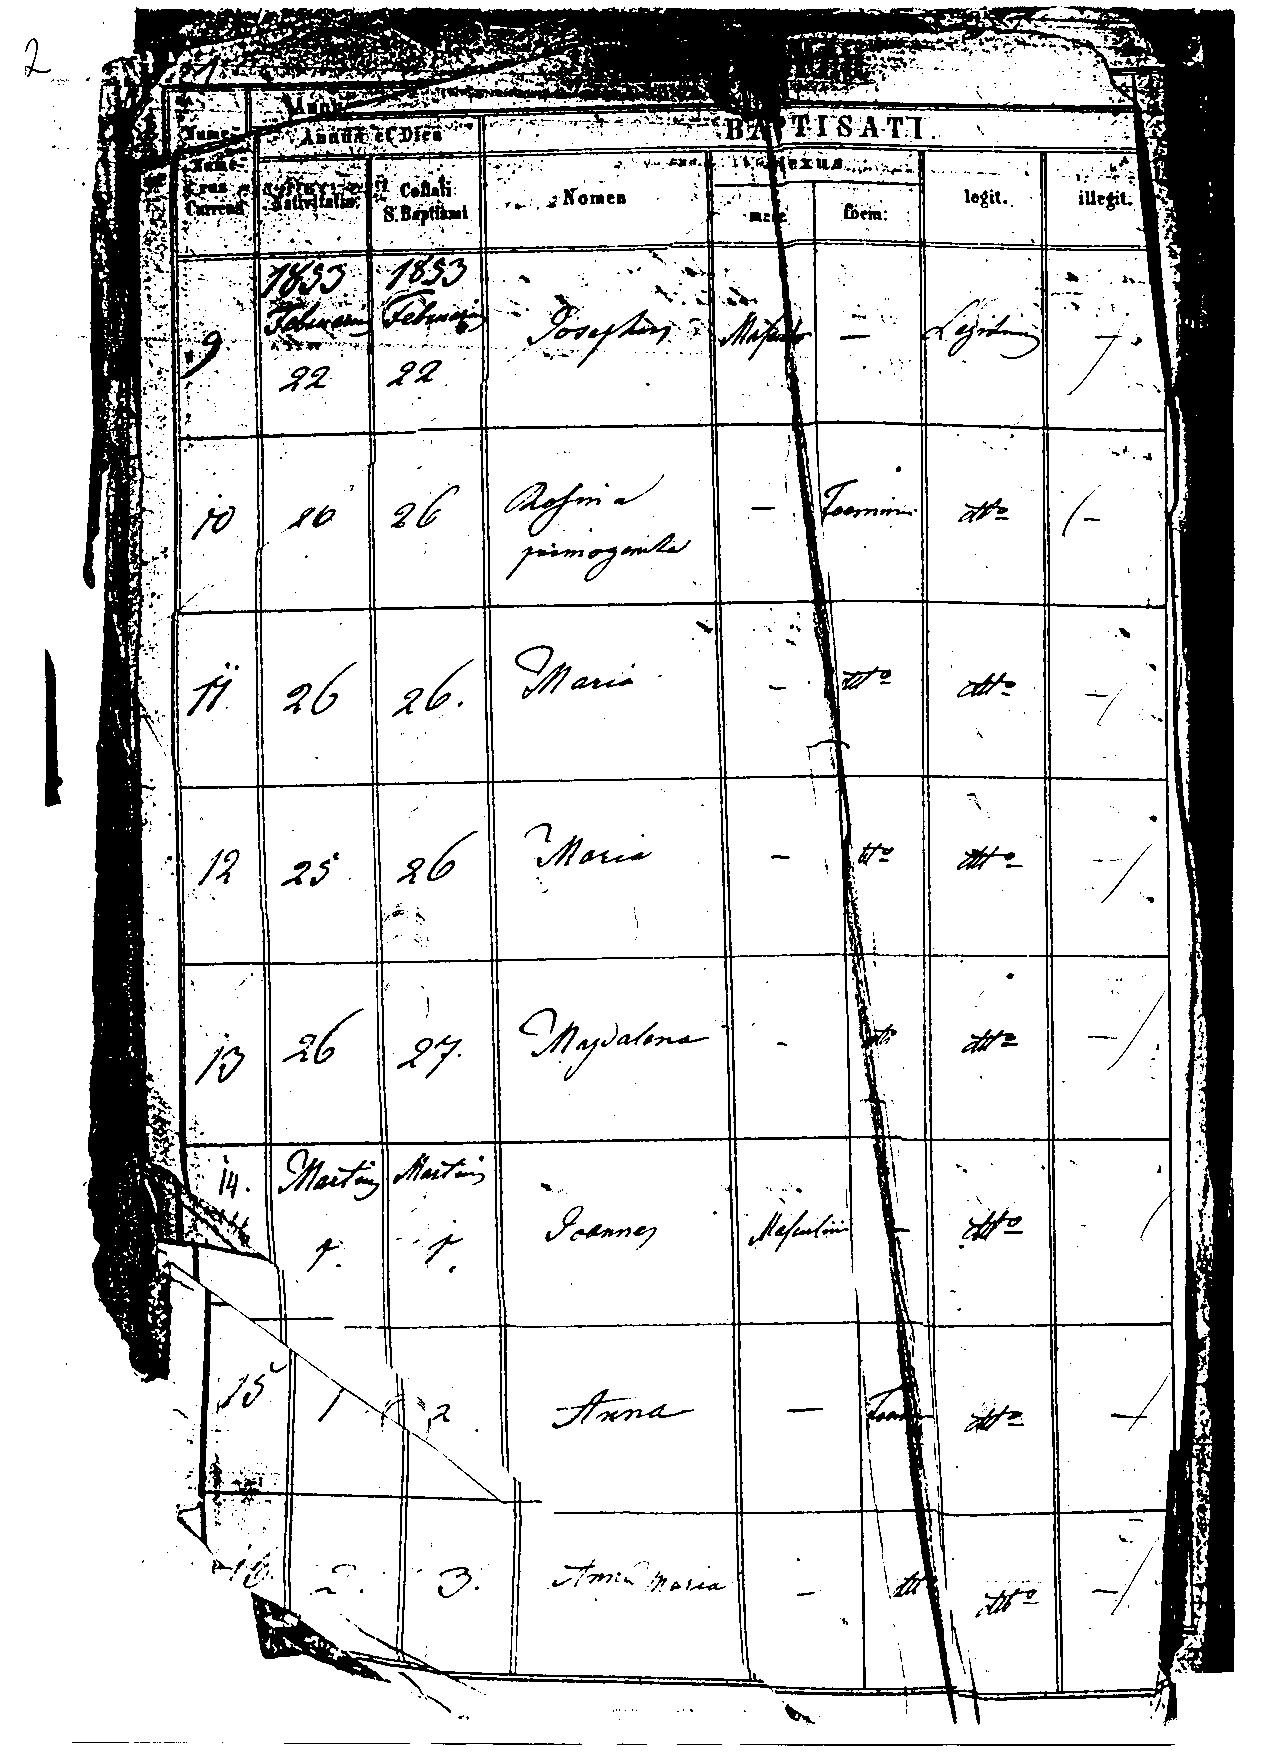 2
Annus et Dies
BAPTISATI.
Nume-
rus
Currens
Nativitatis
Collati
S. Baptismi
Nomen
Sexus
masc.
foem:
legit.
illegit.
9. 1853 Februarii 22 1853 Februarii 22 Josephus — Legitimus —
10 26 26 Rosina primogenita — Foemin. dtto —
11 26 26. Maria — dtto dtto —
12 25 26 Maria — dtto dtto —
13 26 27. Magdalena - dtto dtto —
14. Martii 1. Martii 1. Joannes Masculini — dtto
15 1 2 Anna — Foem dtto —
16. 2. 3. Anna Maria - dtto dtto —